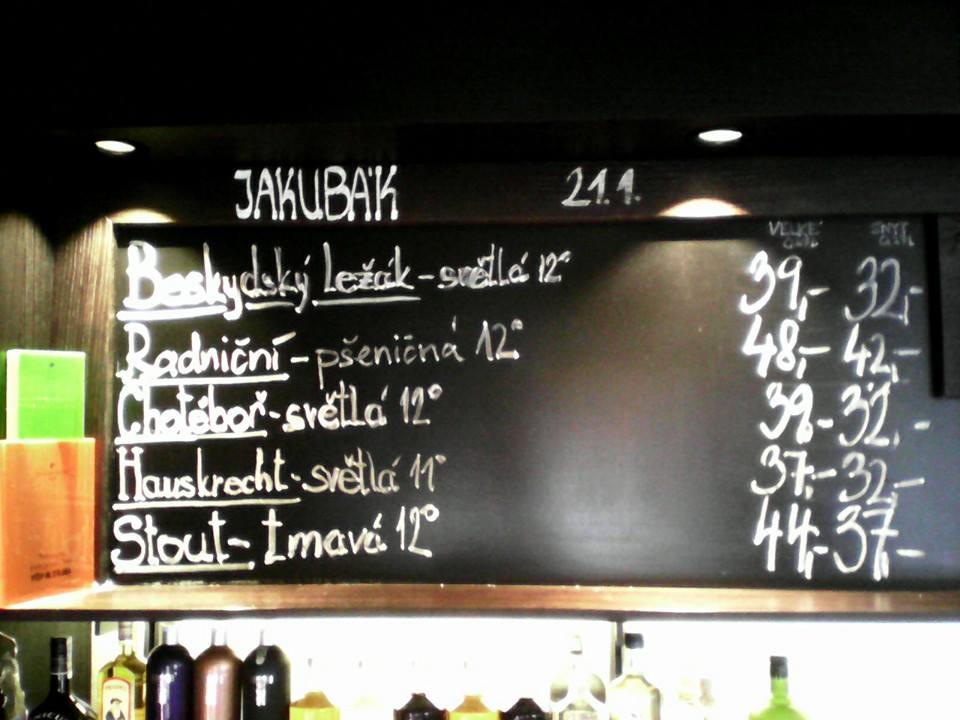 JAKUBÁK 21.1.
VELKÉ
Beskydský Ležák - světlá 12° 39,- 32,-
Radniční - pšeničná 12° 48,- 42,-
Chotěboř - světlá 12° 39,- 32,-
Hauskrecht - světlá 11° 37,- 32,-
Stout - tmavá 12° 44,- 37,-